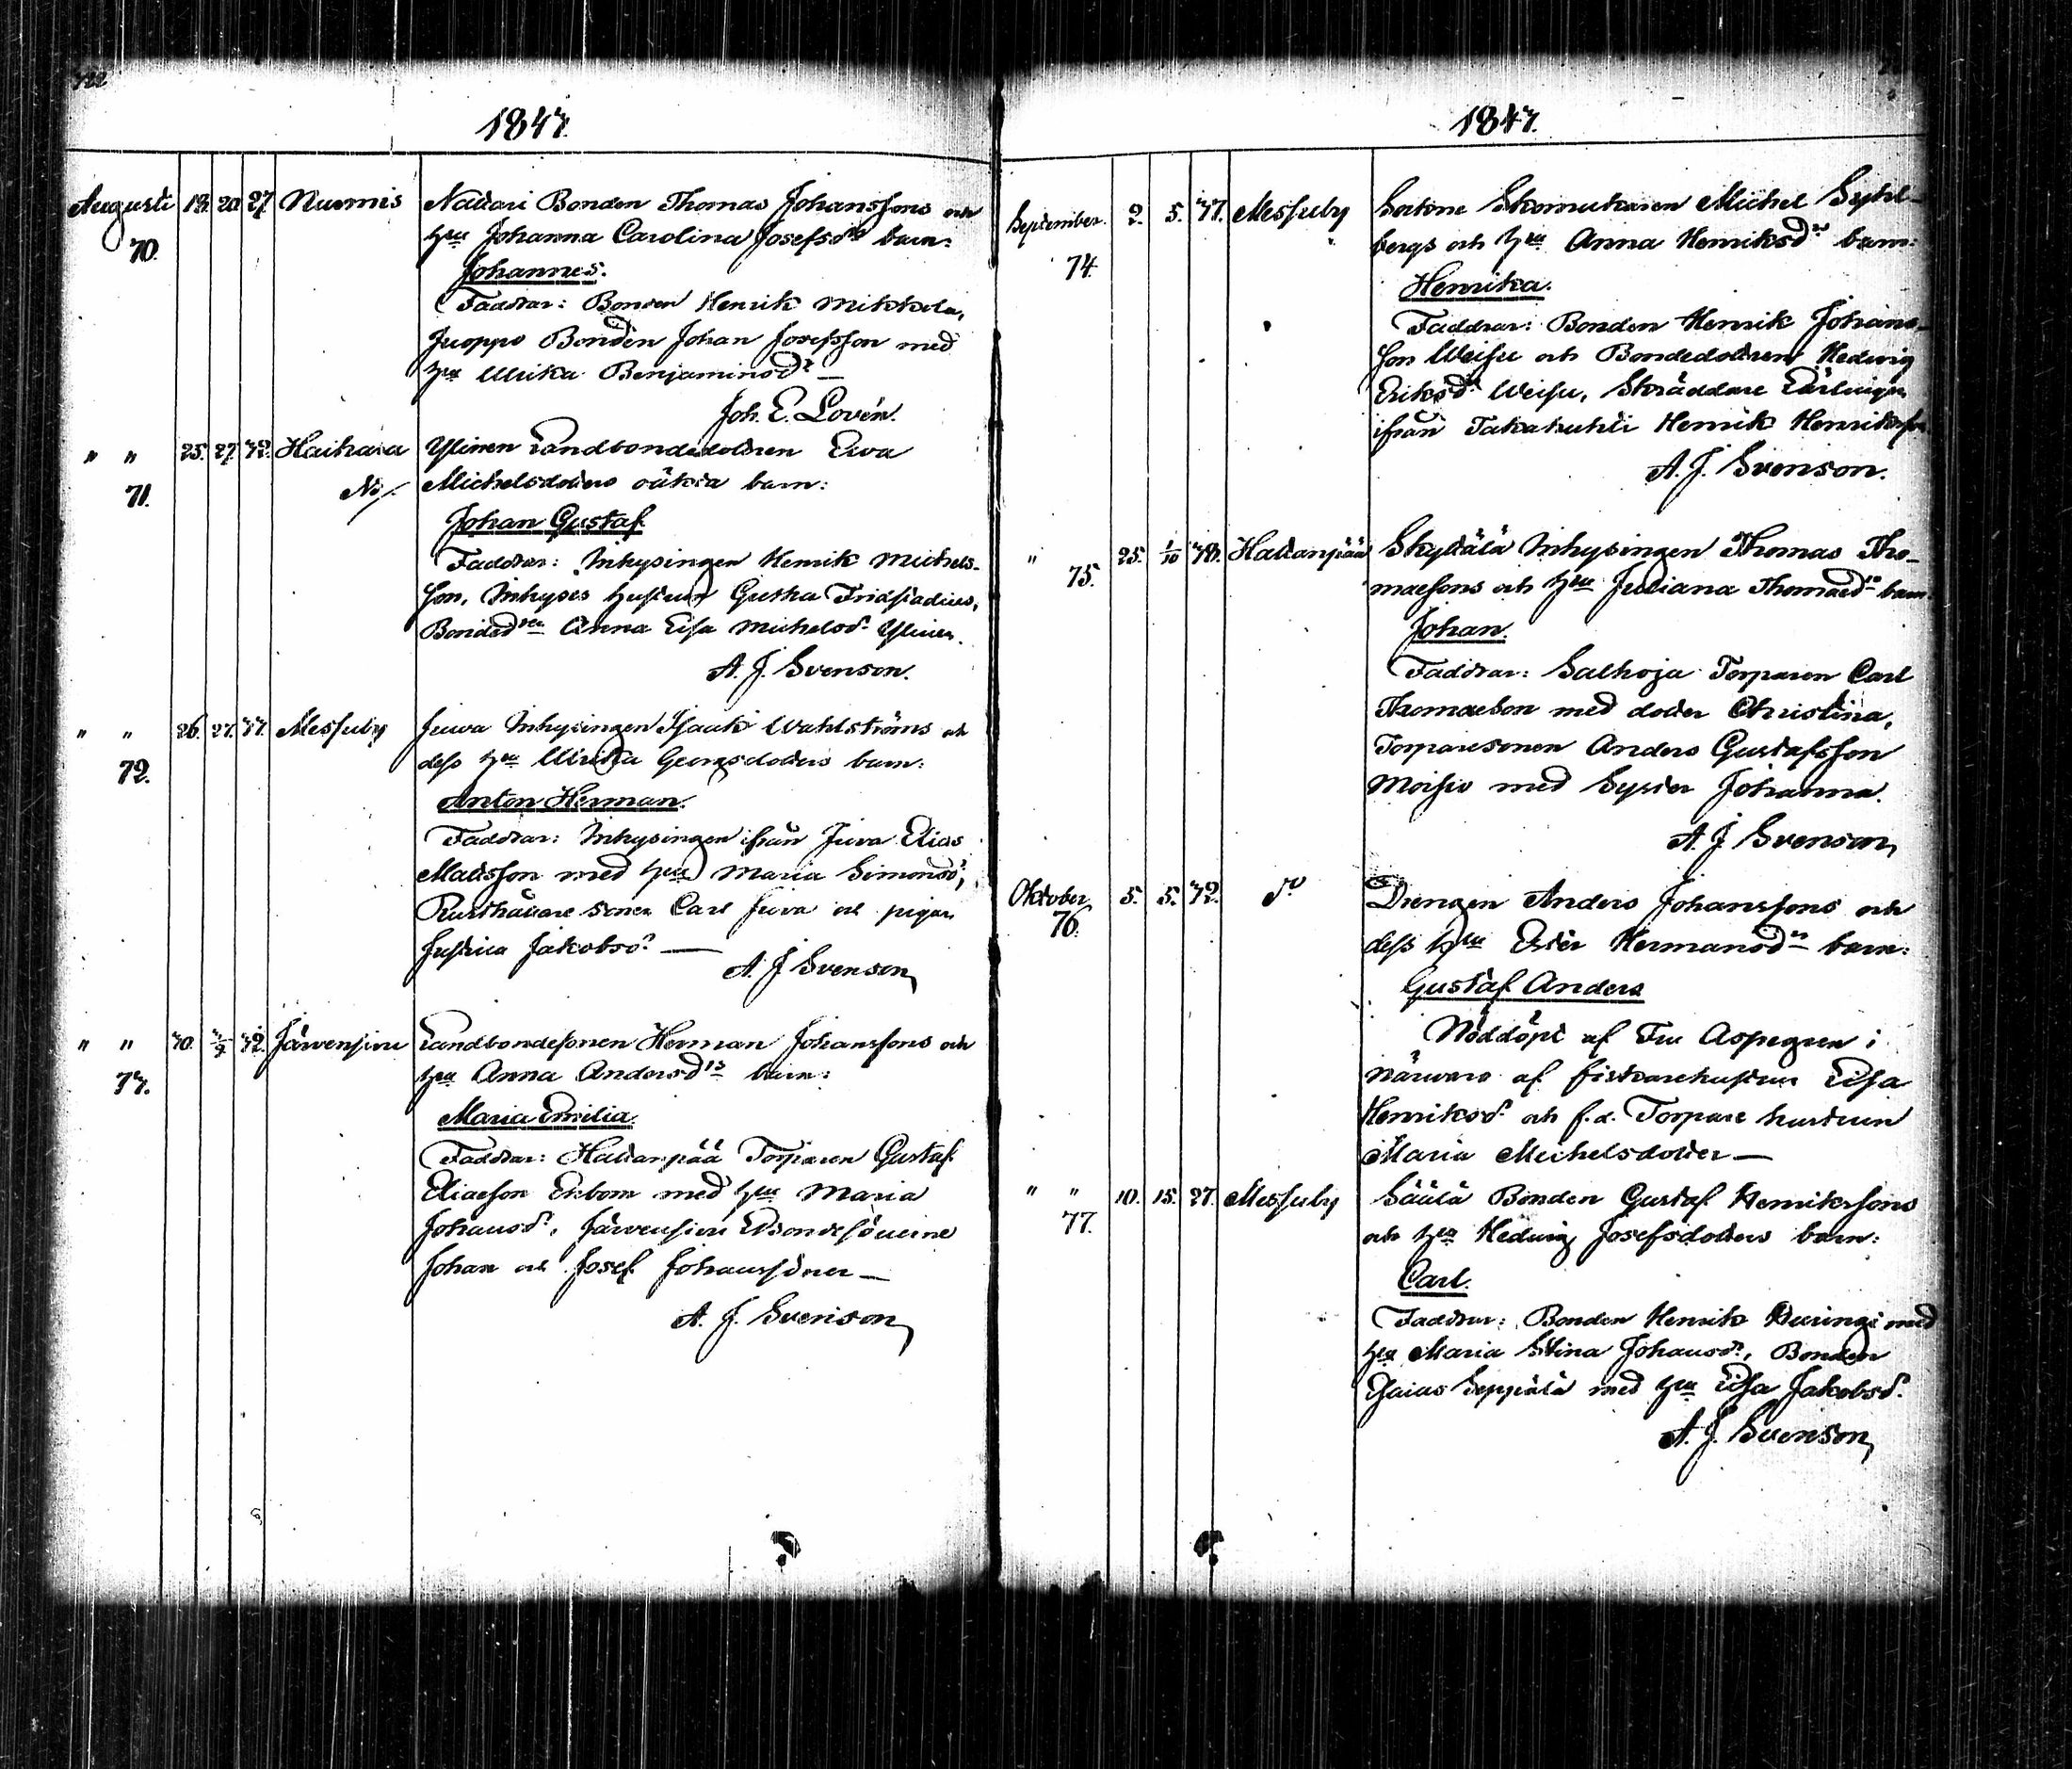 1847.
Augusti 18. 20. 27. Nuomis Nattari Bonden Thomas Johanssons och
70. hu Johanna Carolina Josefsdrs barn:
Johannes.
Faddrar: Bonden Henrik Mikkola,
Juoppo Bonden Johan Josefsson med
hu Ulrika Benjaminsdr —
Joh. E. Lovén.
" " 25. 27. Haihara Ylinen Landbondedottren Eva
71. No/. Michelsdotters oäkta barn:
Johan Gustaf.
Faddrar: Inhysingen Henrik Michels-
son, Inhyses hustrun Greta
Bonded Anna Lisa Michelsd. Ylinen.
A. J. Svenson.
" " 26. 27. Messuby Juva Inhysingen Isaak Wahlströms och
72. dess hu Ulrika Georgsdotters barn:
Anton Herman.
Faddrar: Inhysingen ifrån Juva Elias
Mattsson med hu Maria Simonsd,
Rusthållare sonen Carl Juva och pigan
Justina Jakobsd. —
A. J. Svenson
" " 30. Järvensivu Landbondesonen Herman Johanssons och
73. hu Anna Andersdrs barn:
Maria Emilia.
Faddrar: Hattanpää Torparen Gustaf
Eliaeson Ekbom med hu Maria
Johansd., Järvensivu Bondesönerne
Johan och Josef Johanssöner —
A. J. Svenson
1847.
September. 2. 5. Messuby Sorkone Skomakaren Michel
74. bergs och hu Anna Henriksdrs barn:
Henrika.
Faddrar: Bonden Henrik Johans-
son Weisu och Bondedottren Hedvig
Eriksd. Weisu, Skräddare Lärlingen
ifrån Takahuhti Henrik Henriksson
A. J. Svenson.
" 25. 1/10 Hattanpää Skyttälä Inhysingen Thomas Tho-
75. maesons och hu Juliana Thomaedrs barn
Johan.
Faddrar: Salhoja Torparen Carl
Thomaeson med dotter Christina,
Torparesonen Anders Gustafsson
Moisio med Syster Johanna.
A. J. Svenson
Oktober 5. 5. do Drengen Anders Johanssons och
76. dess hu Ester Hermansdrs barn:
Gustaf Anders
Nöddöpt af Fru Aspegren i
närvaro af fiskarehustrun Lisa
Henriksd. och f.d. Torpare hustrun
Maria Michelsdotter —
" " 10. 15. 27. Messuby Säälä Bonden Gustaf Henrikssons
77. och hu Hedvig Josefsdotters barn:
Carl.
Faddrar: Bonden Henrik med
hu Maria Stina Johansd., Bonden
Esaias Seppälä med hu Lisa Jakobsd.
A. J. Svenson